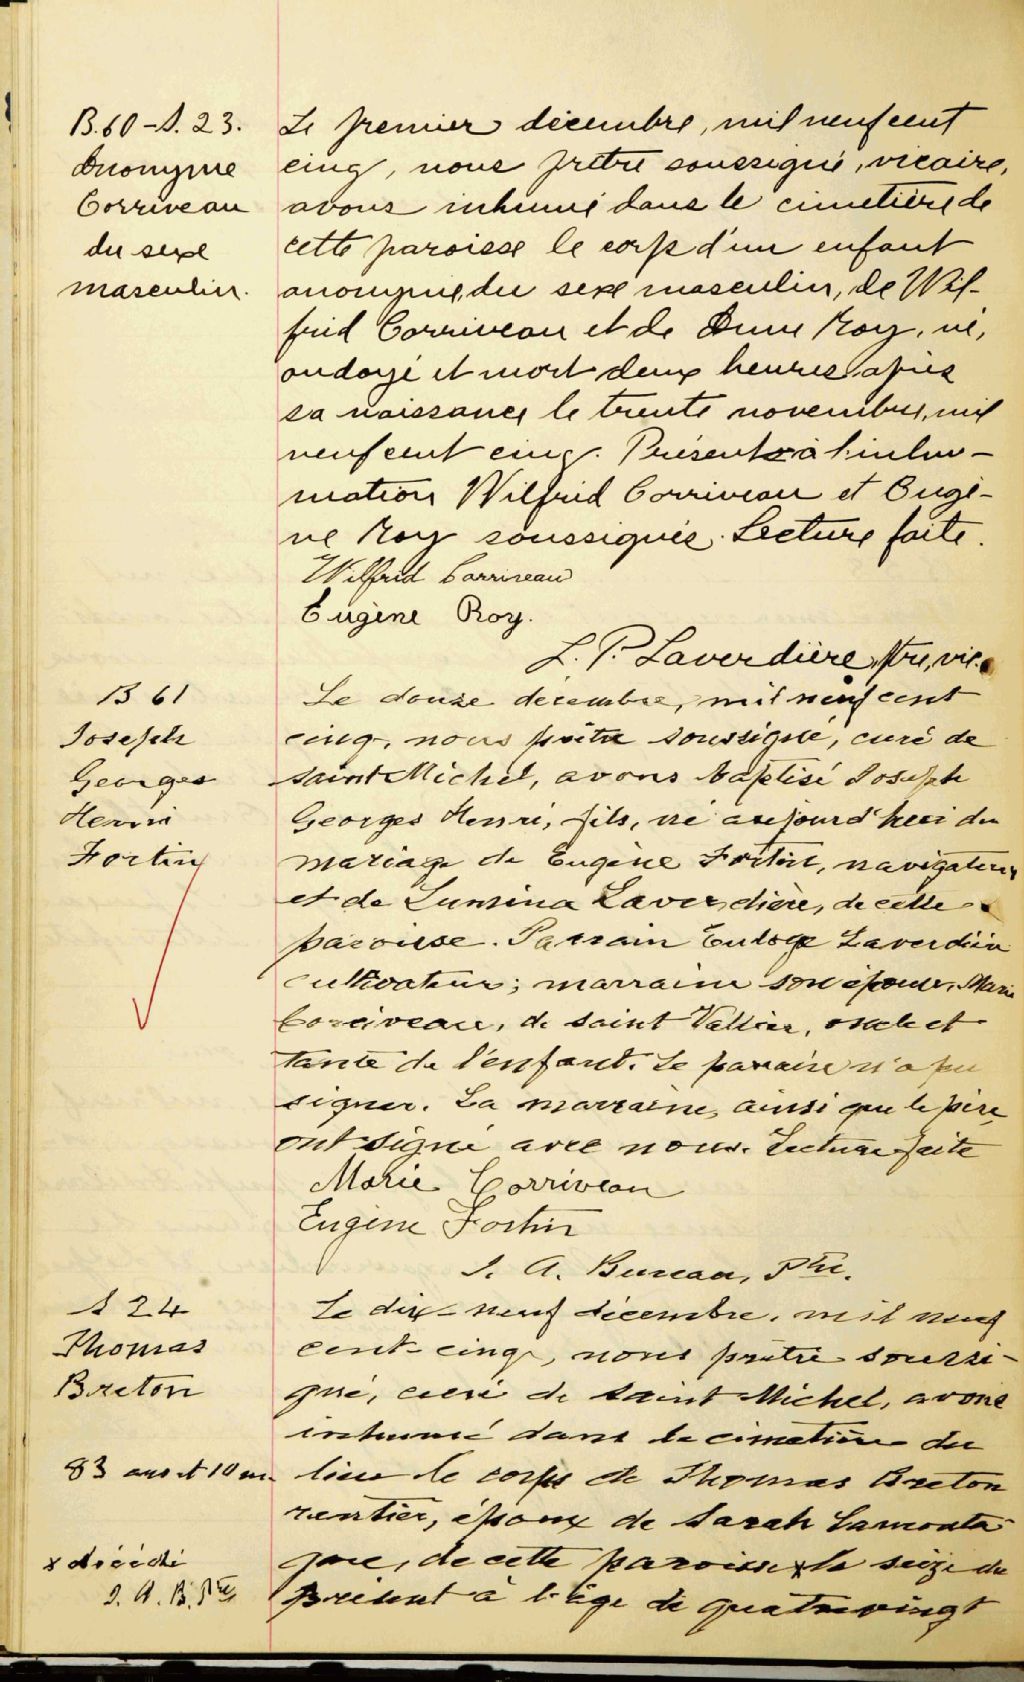 B.60 – S. 23.
Anonyme
Corriveau
du sexe
masculin.
Le premier décembre, mil neuf cent
cinq, nous prêtre soussigné, vicaire,
avons inhumé dans le cimetière de
cette paroisse le corps d'un enfant
anonyme, du sexe masculin, de Wil-
frid Corriveau et de Anne Roy, né,
ondoyé et mort deux heures après
sa naissance le trente novembre, mil
neuf cent cinq. Présents à l'inhu-
mation Wilfrid Corriveau et Eugè-
ne Roy soussignés. Lecture faite.
Wilfrid Corriveau
Eugène Roy.
L. P. Laverdière, ptre, vic.
B 61
Joseph
Georges
Henri
Fortin
Le douze décembre, mil neuf cent
cinq, nous prêtre soussigné, curé de
saint Michel, avons baptisé Joseph
Georges Henri, fils, né aujourd'hui du
mariage de Eugène Fortin, navigateur
et de Lumina Laverdière, de cette
paroisse. Parrain Eudoxe Laverdière
cultivateur; marraine son épouse, Marie
Corriveau, de saint Vallier, oncle et
tante de l'enfant. Le parrain n'a pu
signer. La marraine, ainsi que le père,
ont signé avec nous. Lecture faite
Marie Corriveau
Eugène Fortin
J. A. Bureau, Ptre.
S 24
Thomas
Breton
83 ans et 10 m.
x décédé
J. A. B. Ptre
Le dix-neuf décembre, mil neuf
cent-cinq, nous prêtre soussi-
gné, curé de saint Michel, avons
inhumé dans le cimetière du
lieu le corps de Thomas Breton
rentier, époux de Sarah Lamonta-
gne, de cette paroisse x le seize du
présent à l'âge de quatre vingt